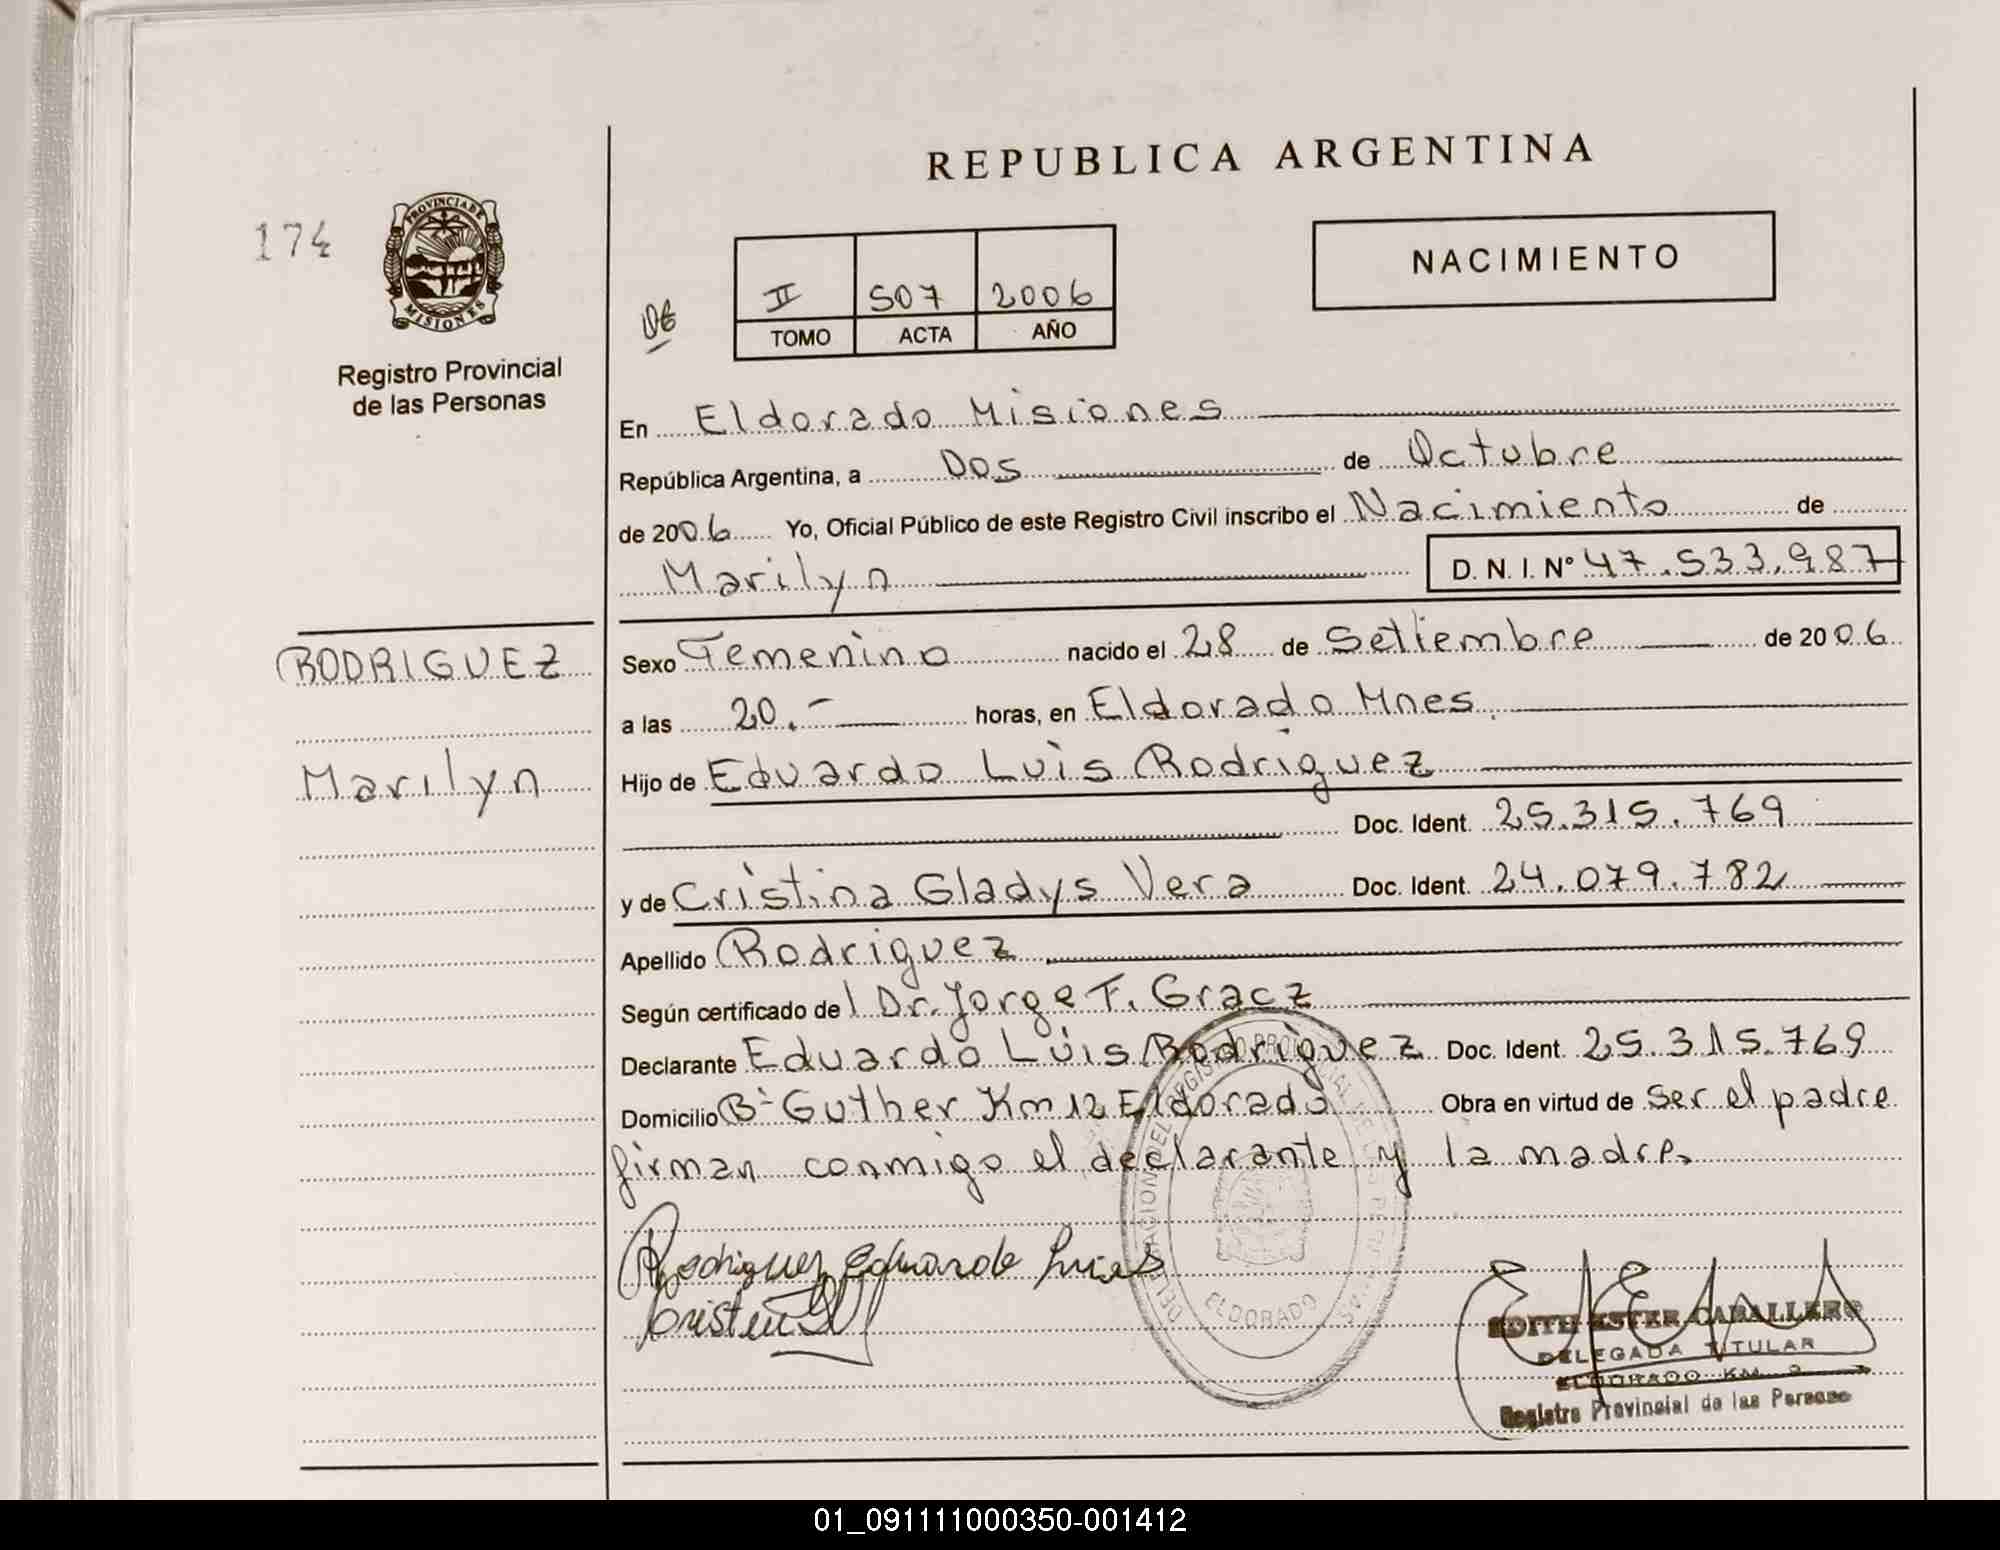 REPUBLICA ARGENTINA
174
PROVINCIA DE
MISIONES
Registro Provincial
de las Personas
NACIMIENTO
II 507 2006
TOMO ACTA AÑO
En Eldorado Misiones
República Argentina, a Dos de Octubre
de 2006 Yo, Oficial Público de este Registro Civil inscribo el Nacimiento de
Marilyn D. N. I. N° 47.533.987
RODRIGUEZ
Marilyn
Sexo Femenino nacido el 28 de Setiembre de 2006
a las 20.- horas, en Eldorado Mnes.
Hijo de Eduardo Luis Rodriguez
Doc. Ident. 25.315.769
y de Cristina Gladys Vera Doc. Ident. 24.079.782
Apellido Rodriguez
Según certificado de l Dr. Jorge F. Gracz
Declarante Eduardo Luis Rodriguez Doc. Ident. 25.315.769
Domicilio B- Guther Km 12 Eldorado Obra en virtud de ser el padre
firman conmigo el declarante y la madre.
Rodriguez Eduardo Luis
ELDORADO
EDITH ESTER CABALLERO
DELEGADA TITULAR
ELDORADO KM. 9
Registro Provincial de las Personas
01_091111000350-001412